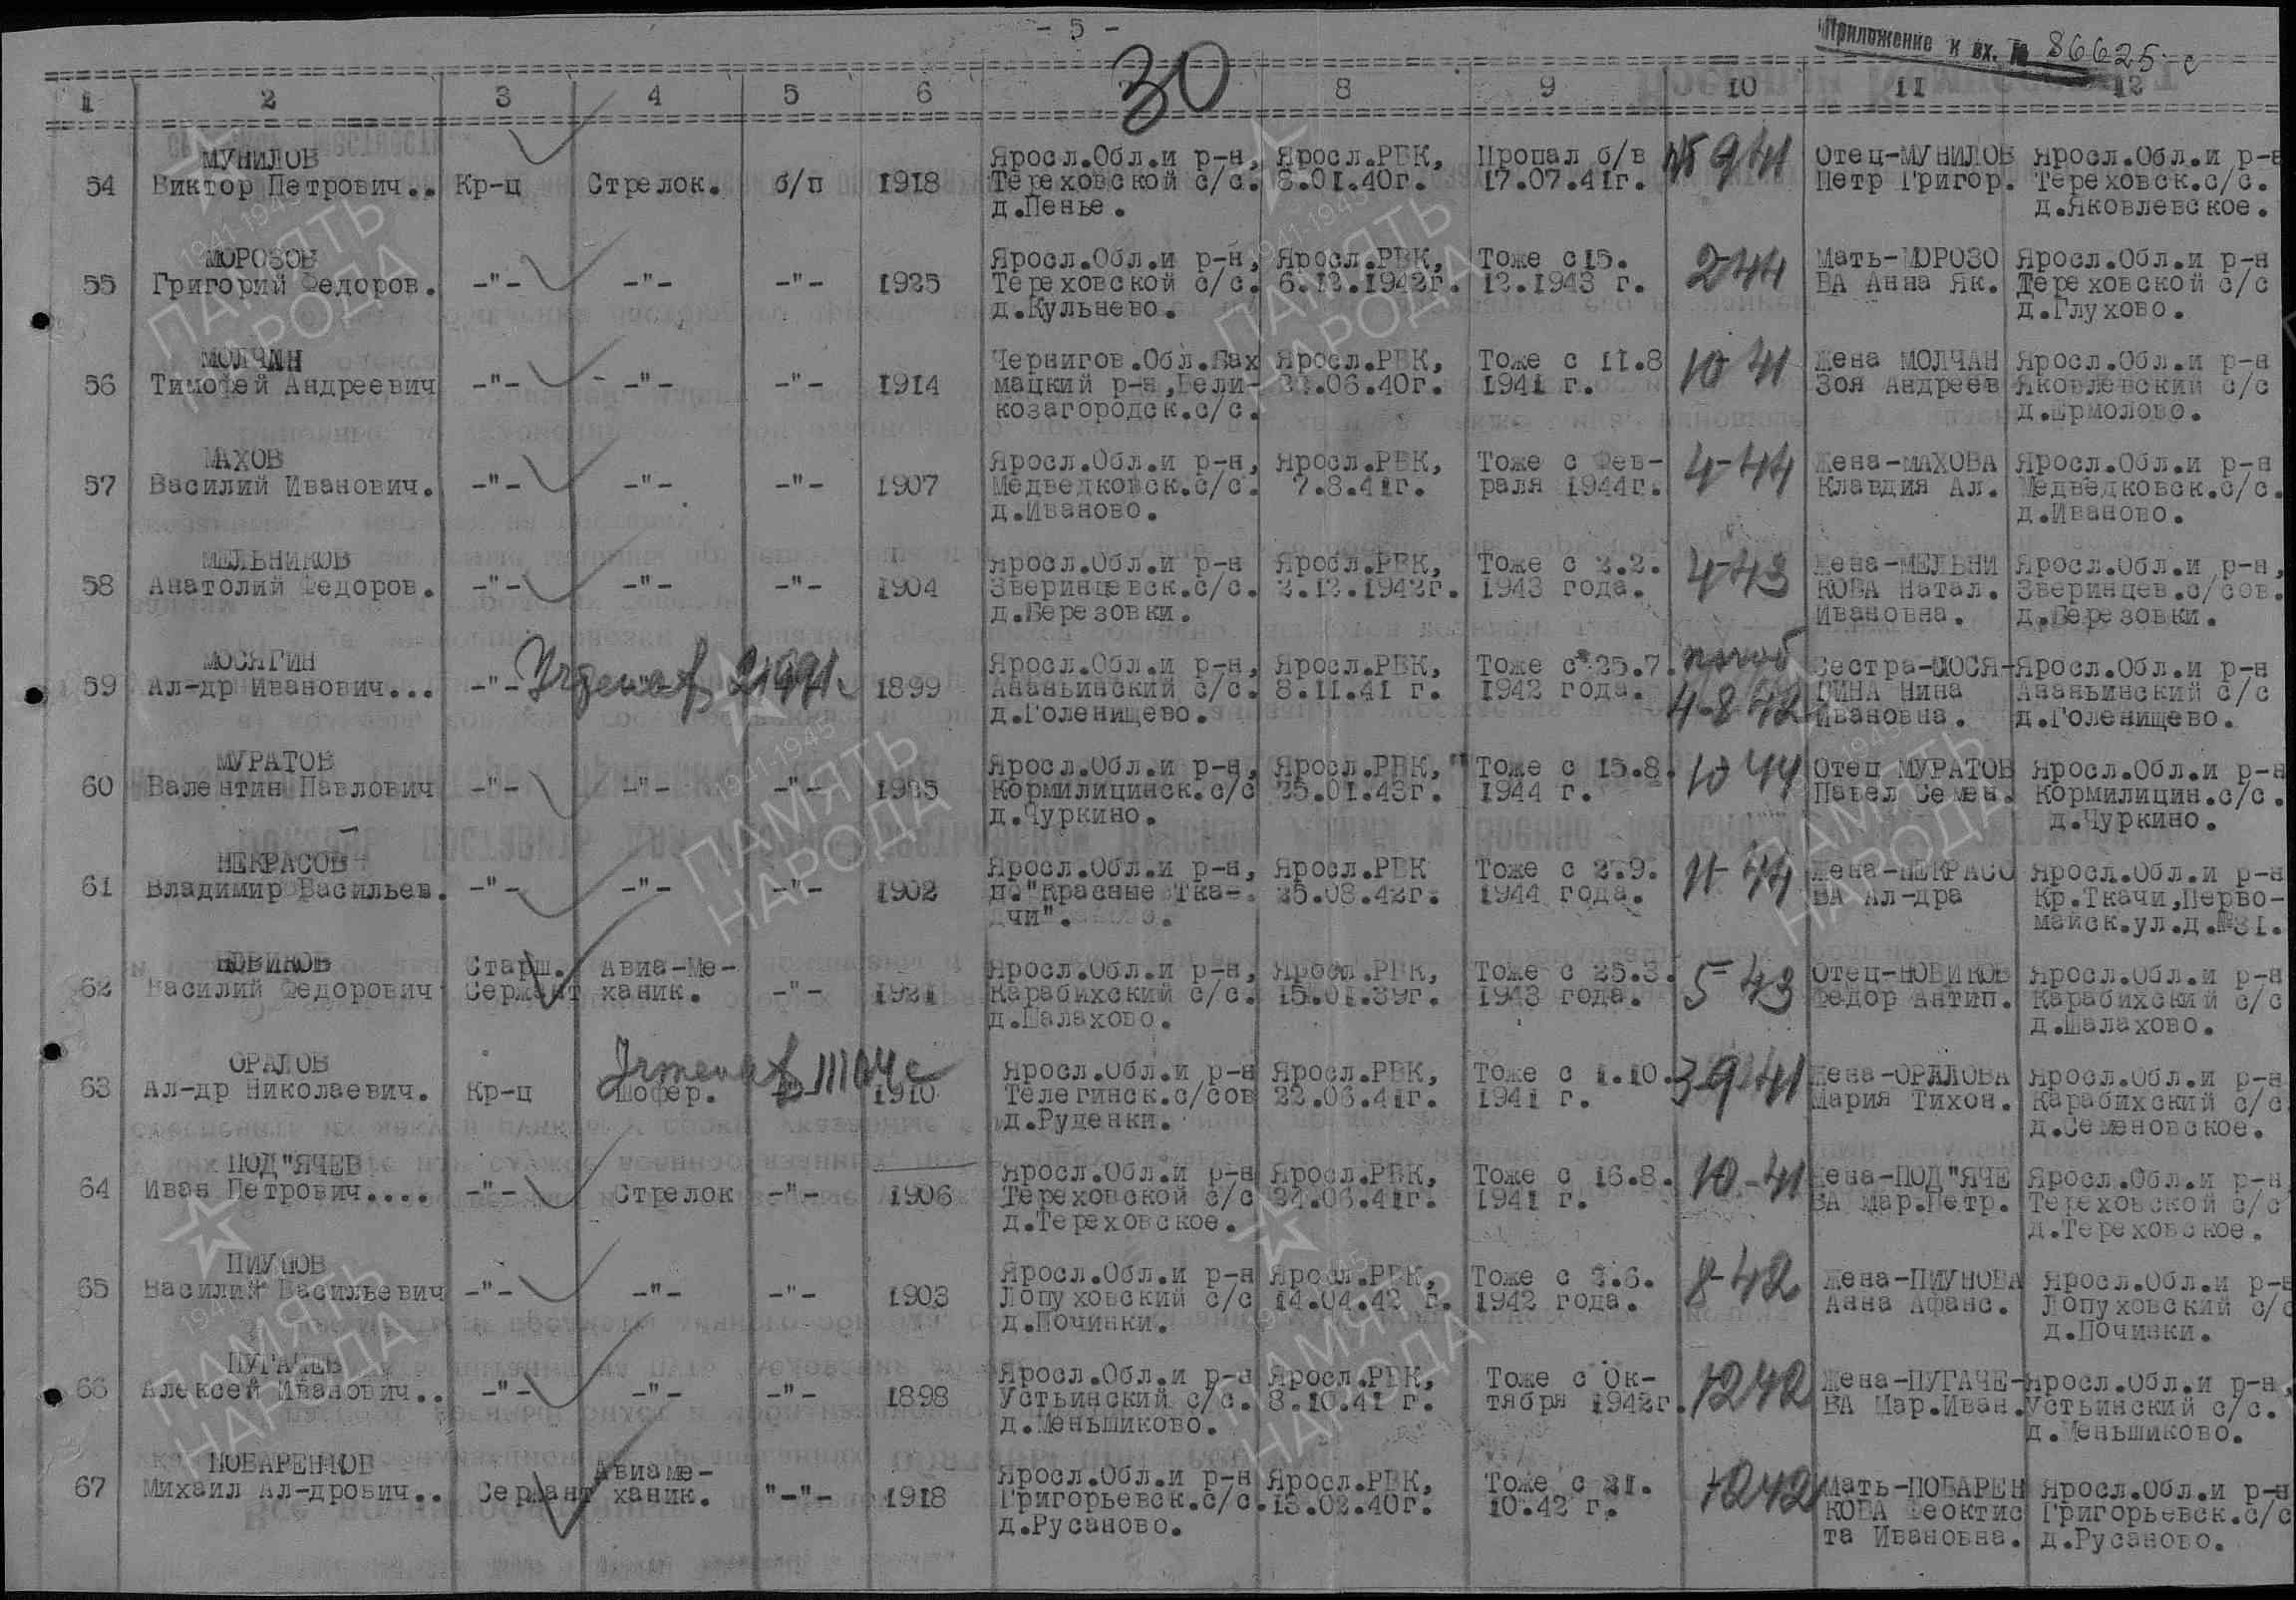 - 5 -
Приложение к вх. № 86625 с
30
1 2 3 4 5 6 8 9 10 11 12
54
МУНИЛОВ
Виктор Петрович..
Кр-ц
Стрелок.
б/п
1918
Яросл.Обл.и р-н,
Тереховской с/с.
д.Пенье.
Яросл.РВК,
8.01.40г.
Пропал б/в
17.07.41г.
9 41
Отец-МУНИЛОВ
Петр Григор.
Яросл.Обл.и р-н
Тереховск.с/с.
д.Яковлевское.
55
МОРОЗОВ
Григорий Федоров.
-"-
-"-
-"-
1925
Яросл.Обл.и р-н,
Тереховской с/с.
д.Кульнево.
Яросл.РВК,
6.12.1942г.
Тоже с 15.
12.1943 г.
2-44
Мать-МОРОЗО
ВА Анна Як.
Яросл.Обл.и р-н
Тереховской с/с
д.Глухово.
56
МОЛЧАН
Тимофей Андреевич
-"-
-"-
-"-
1914
Чернигов.Обл.Бах
мацкий р-н,Вели-
козагородск.с/с.
Яросл.РВК,
.06.40г.
Тоже с 11.8
1941 г.
10 41
Жена МОЛЧАН
Зоя Андреев
Яросл.Обл.и р-н
Яковлевский с/с
д.Ермолово.
57
МАХОВ
Василий Иванович.
-"-
-"-
-"-
1907
Яросл.Обл.и р-н,
Медведковск.с/с.
д.Иваново.
Яросл.РВК,
7.8.41г.
Тоже с Фев-
раля 1944г.
4-44
Жена-МАХОВА
Клавдия Ал.
Яросл.Обл.и р-н
Медведковск.с/с.
д.Иваново.
58
МЕЛЬНИКОВ
Анатолий Федоров.
-"-
-"-
-"-
1904
Яросл.Обл.и р-н
Зверинцевск.с/с.
д.Березовки.
Яросл.РВК,
2.12.1942г.
Тоже с 2.2.
1943 года.
4-43
Жена-МЕЛЬНИ
КОВА Натал.
Ивановна.
Яросл.Обл.и р-н,
Зверинцев.с/сов.
д.Березовки.
59
МОСЯГИН
Ал-др Иванович...
-"-
1899
Яросл.Обл.и р-н,
Ананьинский с/с.
д.Голенищево.
Яросл.РВК,
8.11.41 г.
Тоже с 25.7.
1942 года.
погиб
4-8 42
Сестра-МОСЯ-
ГИНА Нина
Ивановна.
Яросл.Обл.и р-н
Ананьинский с/с
д.Голенищево.
60
МУРАТОВ
Валентин Павлович
-"-
-"-
-"-
1925
Яросл.Обл.и р-н,
Кормилицинск.с/с
д.Чуркино.
Яросл.РВК,
25.01.43г.
Тоже с 15.8.
1944 г.
10 44
Отец МУРАТОВ
Павел Семен.
Яросл.Обл.и р-н
Кормилицин.с/с.
д.Чуркино.
61
НЕКРАСОВ
Владимир Васильев.
-"-
-"-
-"-
1902
Яросл.Обл.и р-н,
п."Красные Тка-
чи".
Яросл.РВК
25.08.42г.
Тоже с 2.9.
1944 года.
11-44
Жена-НЕКРАСО
ВА Ал-дра
Яросл.Обл.и р-н
Кр.Ткачи,Перво-
майск.ул.д.№31.
62
НОВИКОВ
Василий Федорович
Старш.
Сержант
Авиа-Ме-
ханик.
-"-
1921
Яросл.Обл.и р-н,
Карабихский с/с.
д.Шалахово.
Яросл.РВК,
15.01.39г.
Тоже с 25.3.
1943 года.
5-43
Отец-НОВИКОВ
Федор Антип.
Яросл.Обл.и р-н
Карабихский с/с
д.Шалахово.
63
ОРАЛОВ
Ал-др Николаевич.
Кр-ц
Шофер.
1910
Яросл.Обл.и р-н
Телегинск.с/сов
д.Руденки.
Яросл.РВК,
22.06.41г.
Тоже с 1.10.
1941 г.
Жена-ОРАЛОВА
Мария Тихон.
Яросл.Обл.и р-н
Карабихский с/с
д.Семеновское.
64
ПОД"ЯЧЕВ
Иван Петрович....
-"-
Стрелок
-"-
1906
Яросл.Обл.и р-н
Тереховской с/с
д.Тереховское.
Яросл.РВК,
24.06.41г.
Тоже с 16.8.
1941 г.
10-41
Жена-ПОД"ЯЧЕ
ВА Мар.Петр.
Яросл.Обл.и р-н
Тереховской с/с
д.Тереховское.
65
ПИУНОВ
Василий Васильевич
-"-
-"-
-"-
1903
Яросл.Обл.и р-н
Лопуховский с/с
д.Починки.
Яросл.РВК,
14.04.42 г.
Тоже с 2.6.
1942 года.
8-42
Жена-ПИУНОВА
Анна Афанс.
Яросл.Обл.и р-н
Лопуховский с/с
д.Починки.
66
ПУГАЧЕВ
Алексей Иванович..
-"-
-"-
-"-
1898
Яросл.Обл.и р-н
Устьинский с/с.
д.Меньшиково.
Яросл.РВК,
8.10.41 г.
Тоже с Ок-
тября 1942г.
1242
Жена-ПУГАЧЕ-
ВА Мар.Иван.
Яросл.Обл.и р-н,
Устьинский с/с.
д.Меньшиково.
67
ПОВАРЕНКОВ
Михаил Ал-дрович..
Сержант
Авиаме-
ханик.
"-"-
1918
Яросл.Обл.и р-н
Григорьевск.с/с.
д.Русаново.
Яросл.РВК,
13.02.40г.
Тоже с 21.
10.42 г.
1242
Мать-ПОВАРЕН
КОВА Феоктис
та Ивановна.
Яросл.Обл.и р-н
Григорьевск.с/с
д.Русаново.
1941-1945
ПАМЯТЬ
НАРОДА